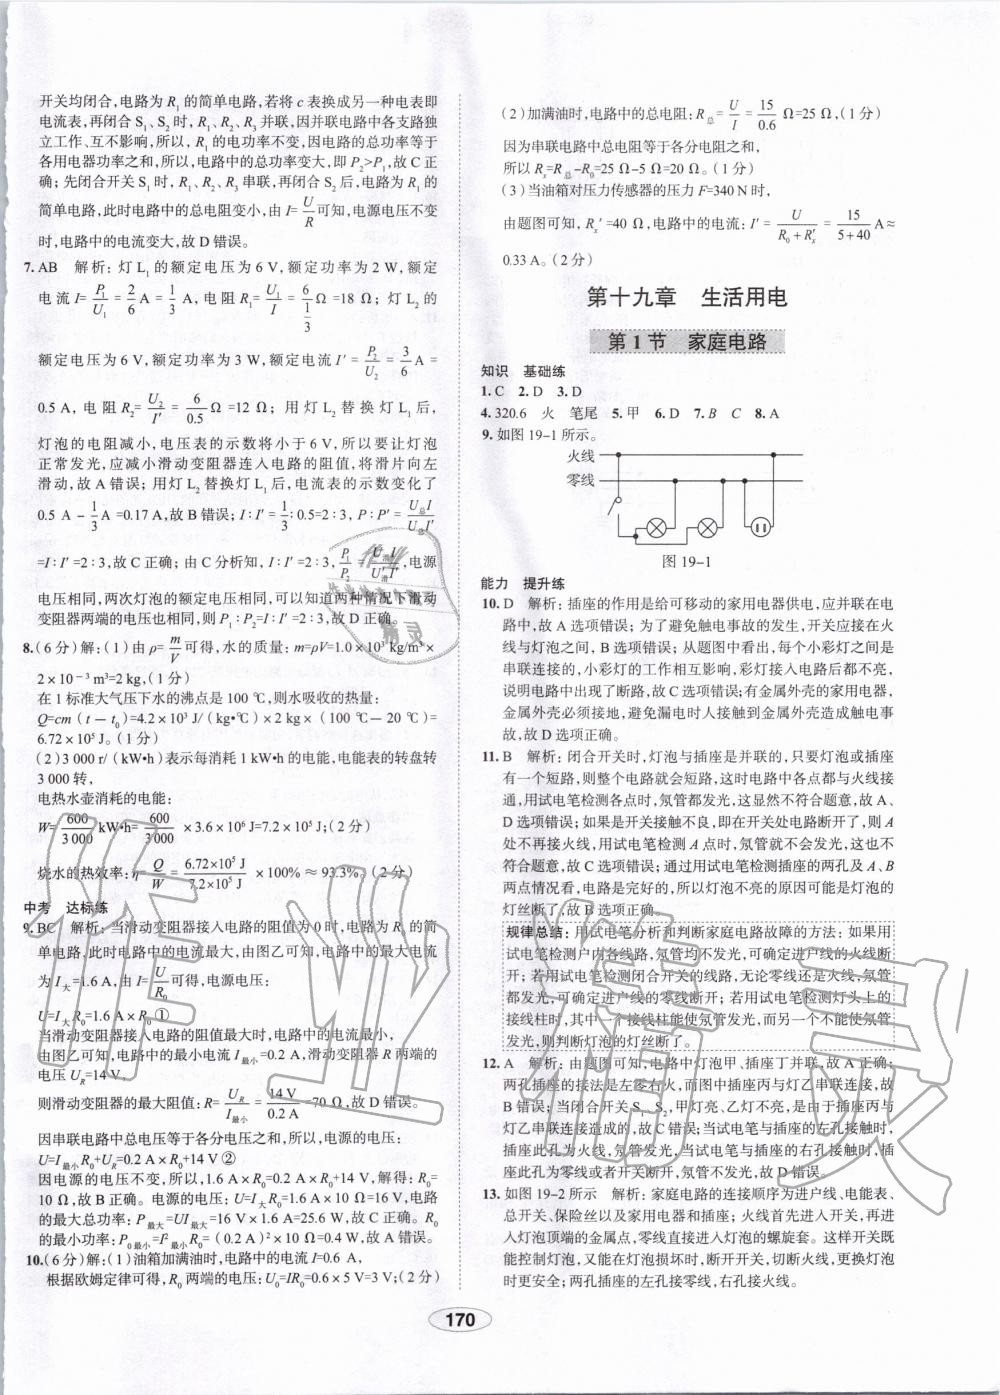 开关均闭合,电路为 R₁ 的简单电路,若将 c 表换成另一种电表即
电流表,再闭合 S₁、S₂ 时, R₁、R₂、R₃ 并联,因并联电路中各支路独
立工作、互不影响,所以, R₁ 的电功率不变,因电路的总功率等于
各用电器功率之和,所以,电路中的总功率变大,即 P₂>P₁,故 C 正
确;先闭合开关 S₁ 时, R₁、R₂、R₃ 串联,再闭合 S₂ 后,电路为 R₁ 的
简单电路,此时电路中的总电阻变小,由 I=U/R 可知,电源电压不变
时,电路中的电流变大,故 D 错误。
7. AB 解析:灯 L₁ 的额定电压为 6 V,额定功率为 2 W,额定
电流 I=P₁/U₁=2/6 A=1/3 A,电阻 R₁=U₁/I=6/(1/3) Ω=18 Ω;灯 L₂ 的
额定电压为 6 V,额定功率为 3 W,额定电流 I′=P₂/U₂=3/6 A=
0.5 A,电阻 R₂=U₂/I′=6/0.5 Ω=12 Ω;用灯 L₂ 替换灯 L₁ 后,
灯泡的电阻减小,电压表的示数将小于 6 V,所以要让灯泡
正常发光,应减小滑动变阻器连入电路的阻值,将滑片向左
滑动,故 A 错误;用灯 L₂ 替换灯 L₁ 后,电流表的示数变化了
0.5 A-1/3 A=0.17 A,故 B 错误; I∶I′=1/3∶0.5=2∶3, P∶P′=U总I/U总I′
=I∶I′=2∶3,故 C 正确;由 C 分析知, I∶I′=2∶3, P₁/P₂=U滑I/U′滑I′,电源
电压相同,两次灯泡的额定电压相同,可以知道两种情况下滑动
变阻器两端的电压也相同,则 P₁∶P₂=I∶I′=2∶3,故 D 正确。
8.(6分)解:(1)由 ρ=m/V 可得,水的质量: m=ρV=1.0×10³ kg/m³×
2×10⁻³ m³=2 kg,(1分)
在 1 标准大气压下水的沸点是 100 ℃,则水吸收的热量:
Q=cm(t-t₀)=4.2×10³ J/(kg•℃)×2 kg×(100 ℃-20 ℃)=
6.72×10⁵ J。(1分)
(2)3 000 r/(kW•h)表示每消耗 1 kW•h 的电能,电能表的转盘转
3 000 转,
电热水壶消耗的电能:
W=600/3 000 kW•h=600/3 000×3.6×10⁶ J=7.2×10⁵ J;(2分)
烧水的热效率: η=Q/W=6.72×10⁵ J/7.2×10⁵ J×100%≈93.3%。(2分)
中考 达标练
9. BC 解析:当滑动变阻器接入电路的阻值为 0 时,电路为 R₀ 的简
单电路,此时电路中的电流最大,由图乙可知,电路中的最大电流
为 I大=1.6 A,由 I=U/R₀ 可得,电源电压:
U=I大R₀=1.6 A×R₀ ①
当滑动变阻器接入电路的阻值最大时,电路中的电流最小,
由图乙可知,电路中的最小电流 I最小=0.2 A,滑动变阻器 R 两端的
电压 U_R=14 V,
则滑动变阻器的最大阻值: R=U_R/I最小=14 V/0.2 A=70 Ω,故 D 错误。
因串联电路中总电压等于各分电压之和,所以,电源的电压:
U=I最小R₀+U_R=0.2 A×R₀+14 V ②
因电源的电压不变,所以,1.6 A×R₀=0.2 A×R₀+14 V,解得: R₀=
10 Ω,故 B 正确。电源的电压: U=I大R₀=1.6 A×10 Ω=16 V,电路
的最大总功率: P最大=UI最大=16 V×1.6 A=25.6 W,故 C 正确。R₀
的最小功率: P₀最小=I²最小R₀=(0.2 A)²×10 Ω=0.4 W,故 A 错误。
10.(6分)解:(1)油箱加满油时,电路中的电流 I=0.6 A,
根据欧姆定律可得, R₀ 两端的电压: U₀=IR₀=0.6×5 V=3 V;(2分)
(2)加满油时,电路中的总电阻: R总=U/I=15/0.6 Ω=25 Ω,(1分)
因为串联电路中总电阻等于各分电阻之和,
所以 Rₓ=R总-R₀=25 Ω-5 Ω=20 Ω。(1分)
(3)当油箱对压力传感器的压力 F=340 N 时,
由题图可知, Rₓ′=40 Ω,电路中的电流: I′=U/(R₀+R′ₓ)=15/(5+40) A≈
0.33 A。(2分)
第十九章 生活用电
第 1 节 家庭电路
知识 基础练
1. C 2. D 3. D
4. 320.6 火 笔尾 5. 甲 6. D 7. B C 8. A
9. 如图 19-1 所示。
火线
零线
图 19-1
能力 提升练
10. D 解析:插座的作用是给可移动的家用电器供电,应并联在电
路中,故 A 选项错误;为了避免触电事故的发生,开关应接在火
线与灯泡之间, B 选项错误;从题图中看出,每个小彩灯之间是
串联连接的,小彩灯的工作相互影响,彩灯接入电路后都不亮,
说明电路中出现了断路,故 C 选项错误;有金属外壳的家用电器,
金属外壳必须接地,避免漏电时人接触到金属外壳造成触电事
故,故 D 选项正确。
11. B 解析:闭合开关时,灯泡与插座是并联的,只要灯泡或插座
有一个短路,则整个电路就会短路,这时电路中各点都与火线接
通,用试电笔检测各点时,氖管都发光,这显然不符合题意,故 A、
D 选项错误;如果是开关接触不良,即在开关处电路断开了,则 A
处不再接火线,用试电笔检测 A 点时,氖管就不会发光,这也不
符合题意,故 C 选项错误;通过用试电笔检测插座的两孔及 A、B
两点情况看,电路是完好的,所以灯泡不亮的原因可能是灯泡的
灯丝断了,故 B 选项正确。
规律总结:用试电笔分析和判断家庭电路故障的方法:如果用
试电笔检测户内各线路,氖管均不发光,可确定进户线的火线断
开;若用试电笔检测闭合开关的线路,无论零线还是火线,氖管
都发光,可确定进户线的零线断开;若用试电笔检测灯头上的
接线柱时,其中一个接线柱能使氖管发光,而另一个不能使氖管
发光,则判断灯泡的灯丝断了。
12. A 解析:由题图可知,电路中灯泡甲、插座丁并联,故 A 正确;
两孔插座的接法是左零右火,而图中插座丙与灯乙串联连接,故
B 错误;当闭合开关 S₁、S₂,甲灯亮、乙灯不亮,是由于插座丙与
灯乙串联连接造成的,故 C 错误;当试电笔与插座的左孔接触时,
插座此孔为火线,氖管发光;当试电笔与插座的右孔接触时,插
座此孔为零线或者开关断开,氖管不发光,故 D 错误。
13. 如图 19-2 所示 解析:家庭电路的连接顺序为进户线、电能表、
总开关、保险丝以及家用电器和插座;火线首先进入开关,再进
入灯泡顶端的金属点,零线直接进入灯泡的螺旋套。这样开关既
能控制灯泡,又能在灯泡损坏时,断开开关,切断火线,更换灯泡
时更安全;两孔插座的左孔接零线,右孔接火线。
170
作业精灵